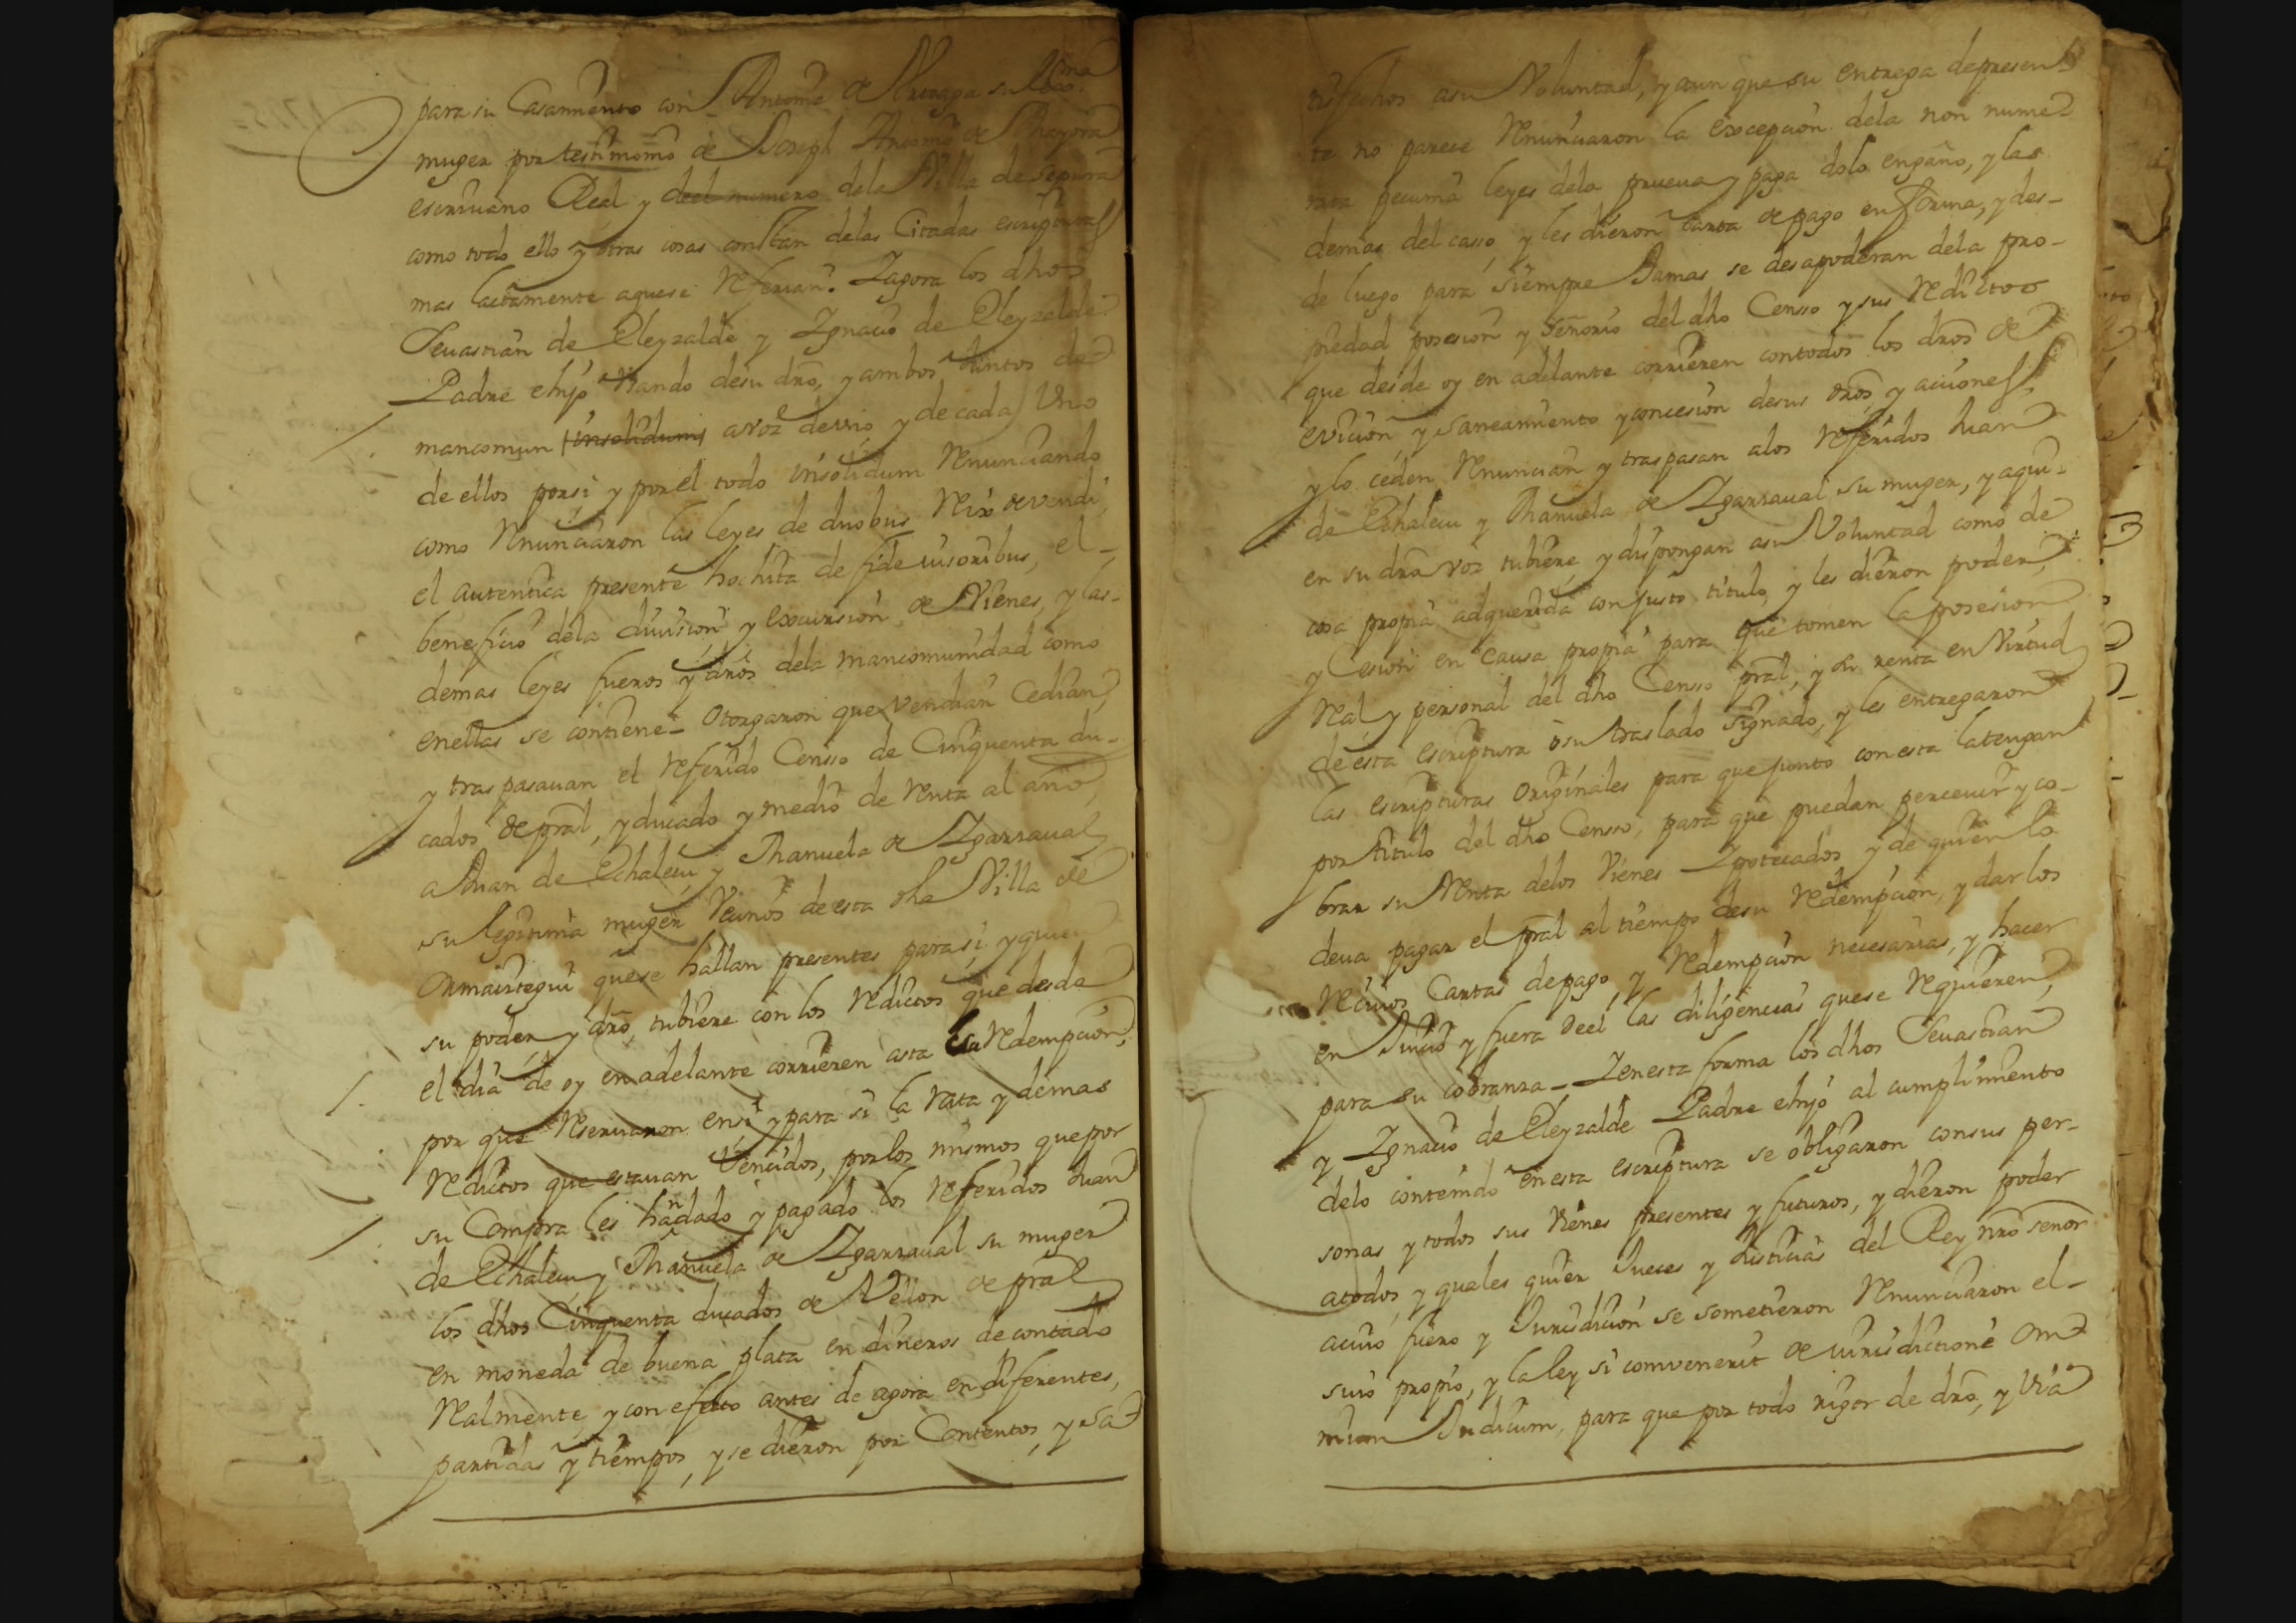 para su Casamiento con Antonia de Urteaga su lexma
muger por testimonio de Joseph Antonio de Mayora
escriuano Real y deel numero dela Villa de segura
como todo ello y otras cosas constan delas Citadas escripturas
mas lactamente aquese referian. Yagora los dhos
Seuastian de Eleyzalde y Ygnacio de Eleyzalde
Padre ehijo Vsando desu dro, y ambos Juntos de
mancomun insolidum avoz devno y de cada Vno
de ellos porsi y porel todo insolidum Renunciando
como Renunciaron las leyes de duobus Reix devendi,
el autentica presente hochita de fide iusoribus, el
beneficio dela diuision y excursion de Vienes, y las
demas leyes fueros y dros dela mancomunidad como
enellas se contiene - Otorgaron que Vendian Cedian
y tras pasauan el Referido Censso de Cinquenta du-
cados de pral, y ducado y medio de Renta al año,
a Juan de Echalecu y Manuela de Ygarraual
su legitima muger Vecinos de esta dha Villa de
Ormaiztegui quese hallan presentes para si, y quien
su poder y dro, tubiere con los Redictos que desde
el dia de oy en adelante corrieren asta su Redempcion,
por que Reseruaron ensi y para si la rata y demas
Redictos que estauan Vencidos, por los mismos que por
su Compra les handado y pagado los referidos Juan
de Echalecu y Manuela de Ygarraual su muger
los dhos Cinquenta ducados de Vellon de pral
en moneda de buena plata en dineros de contado
Realmente, y con efecto antes de agora en diferentes,
partidas y tiempos, y se dieron por Contentos, y Sa-
tisfechos asu Voluntad, y aun que su entrega depresen-
te no parece Renunciaron la excepcion dela non nume-
rata pecunia leyes dela prueua y paga dolo engaño, y las
demas del casso, y les dieron carta de pago en forma, y des-
de luego para siempre Jamas se desapoderan dela pro-
piedad posesion y señorio del dho Censso y sus Redictos
que desde oy en adelante corrieren contodos los dros de
evicion y saneamiento y concesion desus dros, y aciones,
y lo ceden Renuncian y traspasan alos Referidos Juan
de Echalecu y Manuela de Ygarraual su muger, y aqui-
en su dro ò voz tubiere, y dispongan asu Voluntad como de
cosa propia adquerida con justo titulo, y les dieron poder,
y Cesion en causa propia para que tomen la posesion
Real y personal del dho Censso pral, y su renta en Virtud
de esta escriptura ò su traslado signado, y les entregaron
las escripturas Originales para que junto con esta latengan
por titulo del dho Censso, para que puedan perceuir y co-
brar su Renta delos Vienes Ypotecados y de quien lo
deua pagar el pral al tiempo desu redempcion, y dar los
Reciuos Cartas depago y Redempcion necesarias, y hacer
en Juicio y fuera deel las diligencias quese Requieren,
para su cobranza - Yenesta forma los dhos Seuastian
y Ygnacio de Eleyzalde Padre ehijo al cumplimiento
delo contenido enesta escriptura se obligaron consus per-
sonas y todos sus Vienes presentes y futuros, y dieron poder
atodos y quales quier Jueces y Justicias del Rey nro señor
acuio fuero y Jurisdicion se sometieron Renunciaron el-
suio propio, y la ley si comvenerit de iurisdictione Om-
nium Judicum, para que por todo rigor de dro, y Via